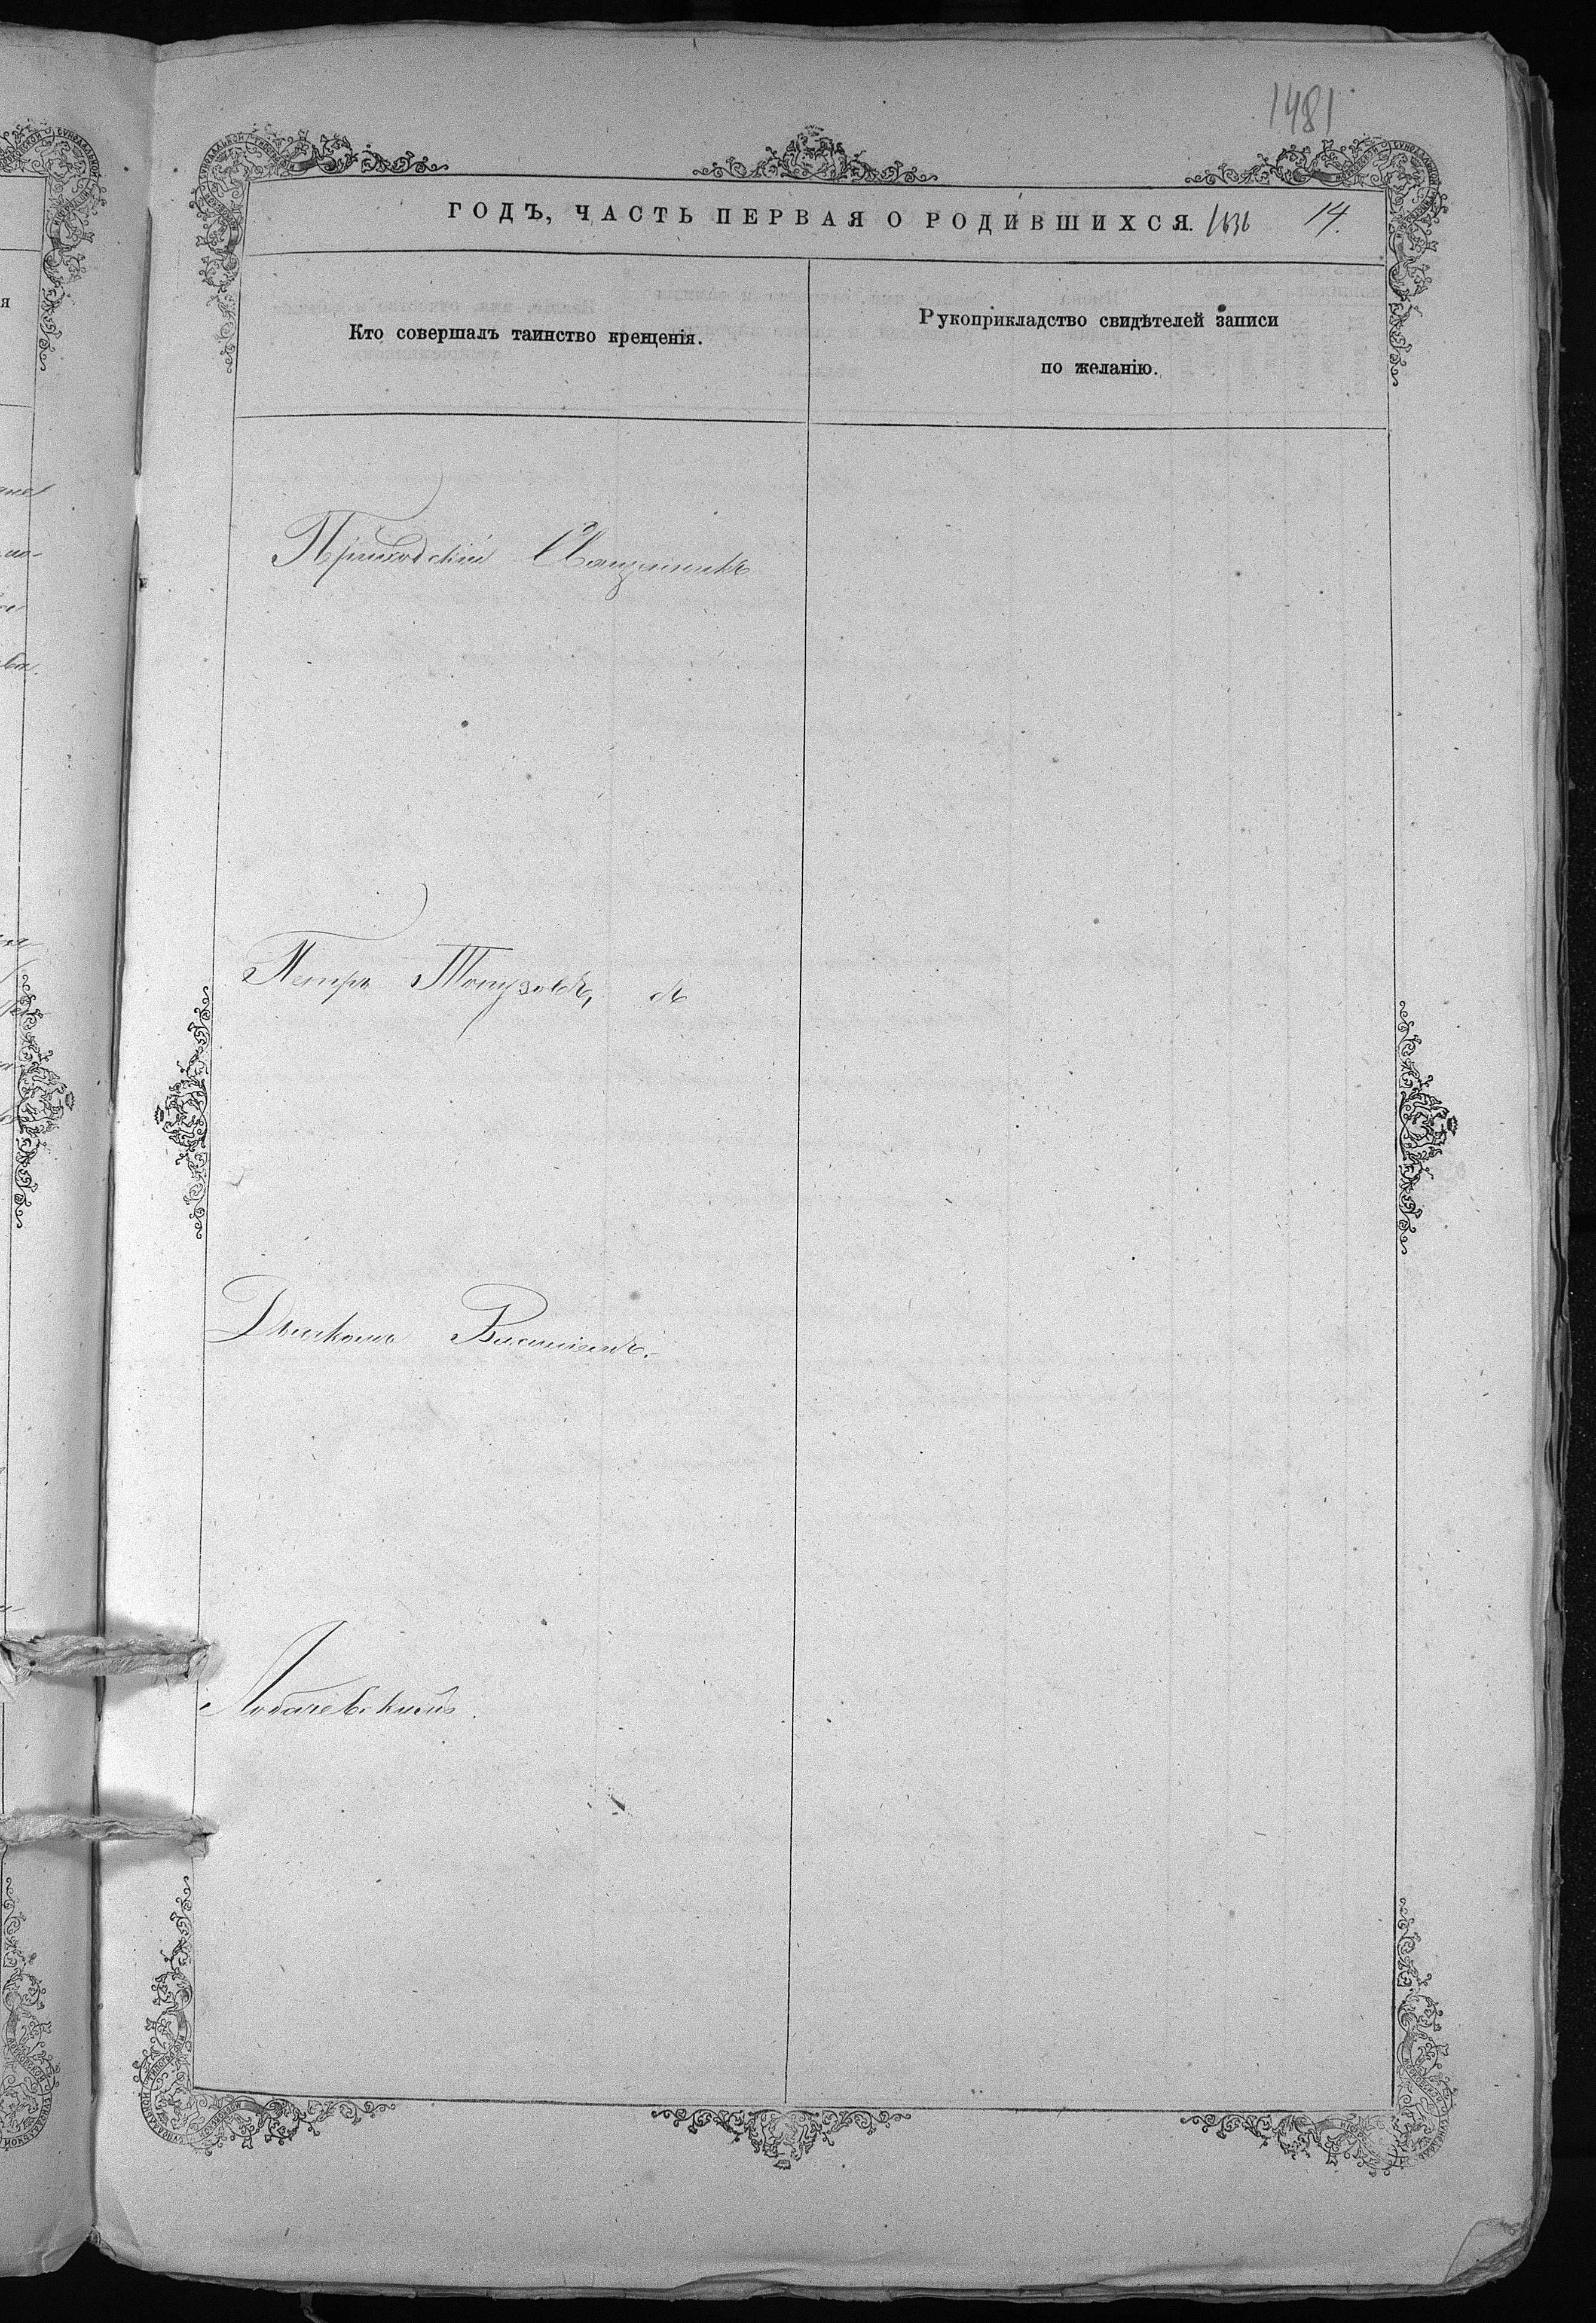 1481
ГОДЪ, ЧАСТЬ ПЕРВАЯ О РОДИВШИХСЯ. 1636 14.
Кто совершалъ таинство крещенія.
Рукоприкладство свидѣтелей записи
по желанію.
Приходскій Священникъ
Петръ Топузовъ, съ
Дьякомъ Василіемъ.
Лобачевскимъ.